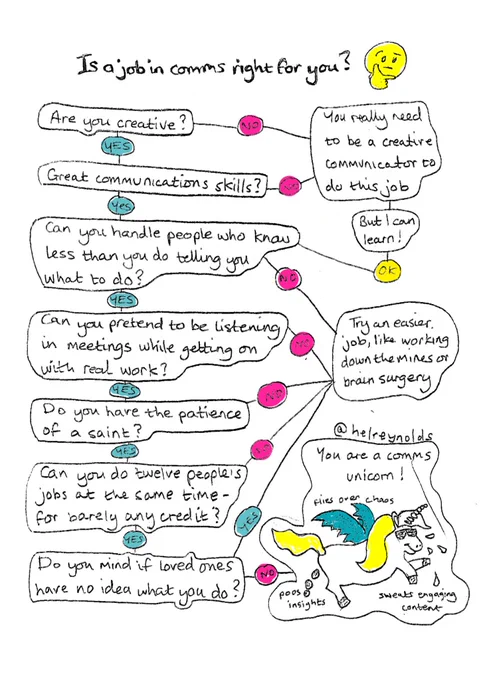 Is a job in comms right for you?
Are you creative?
NO
YES
Great communications skills?
NO
Yes
You really need
to be a creative
communicator to
do this job
But I can
learn!
OK
Can you handle people who know
less than you do telling you
what to do?
NO
YES
Can you pretend to be listening
in meetings while getting on
with real work?
NO
YES
Try an easier
job, like working
down the mines or
brain surgery
Do you have the patience
of a saint?
NO
YES
Can you do twelve people's
jobs at the same time -
for barely any credit?
NO
YES
Do you mind if loved ones
have no idea what you do?
YES
NO
@helreynolds
You are a comms
unicorn!
flies over chaos
poos
insights
sweats engaging
content